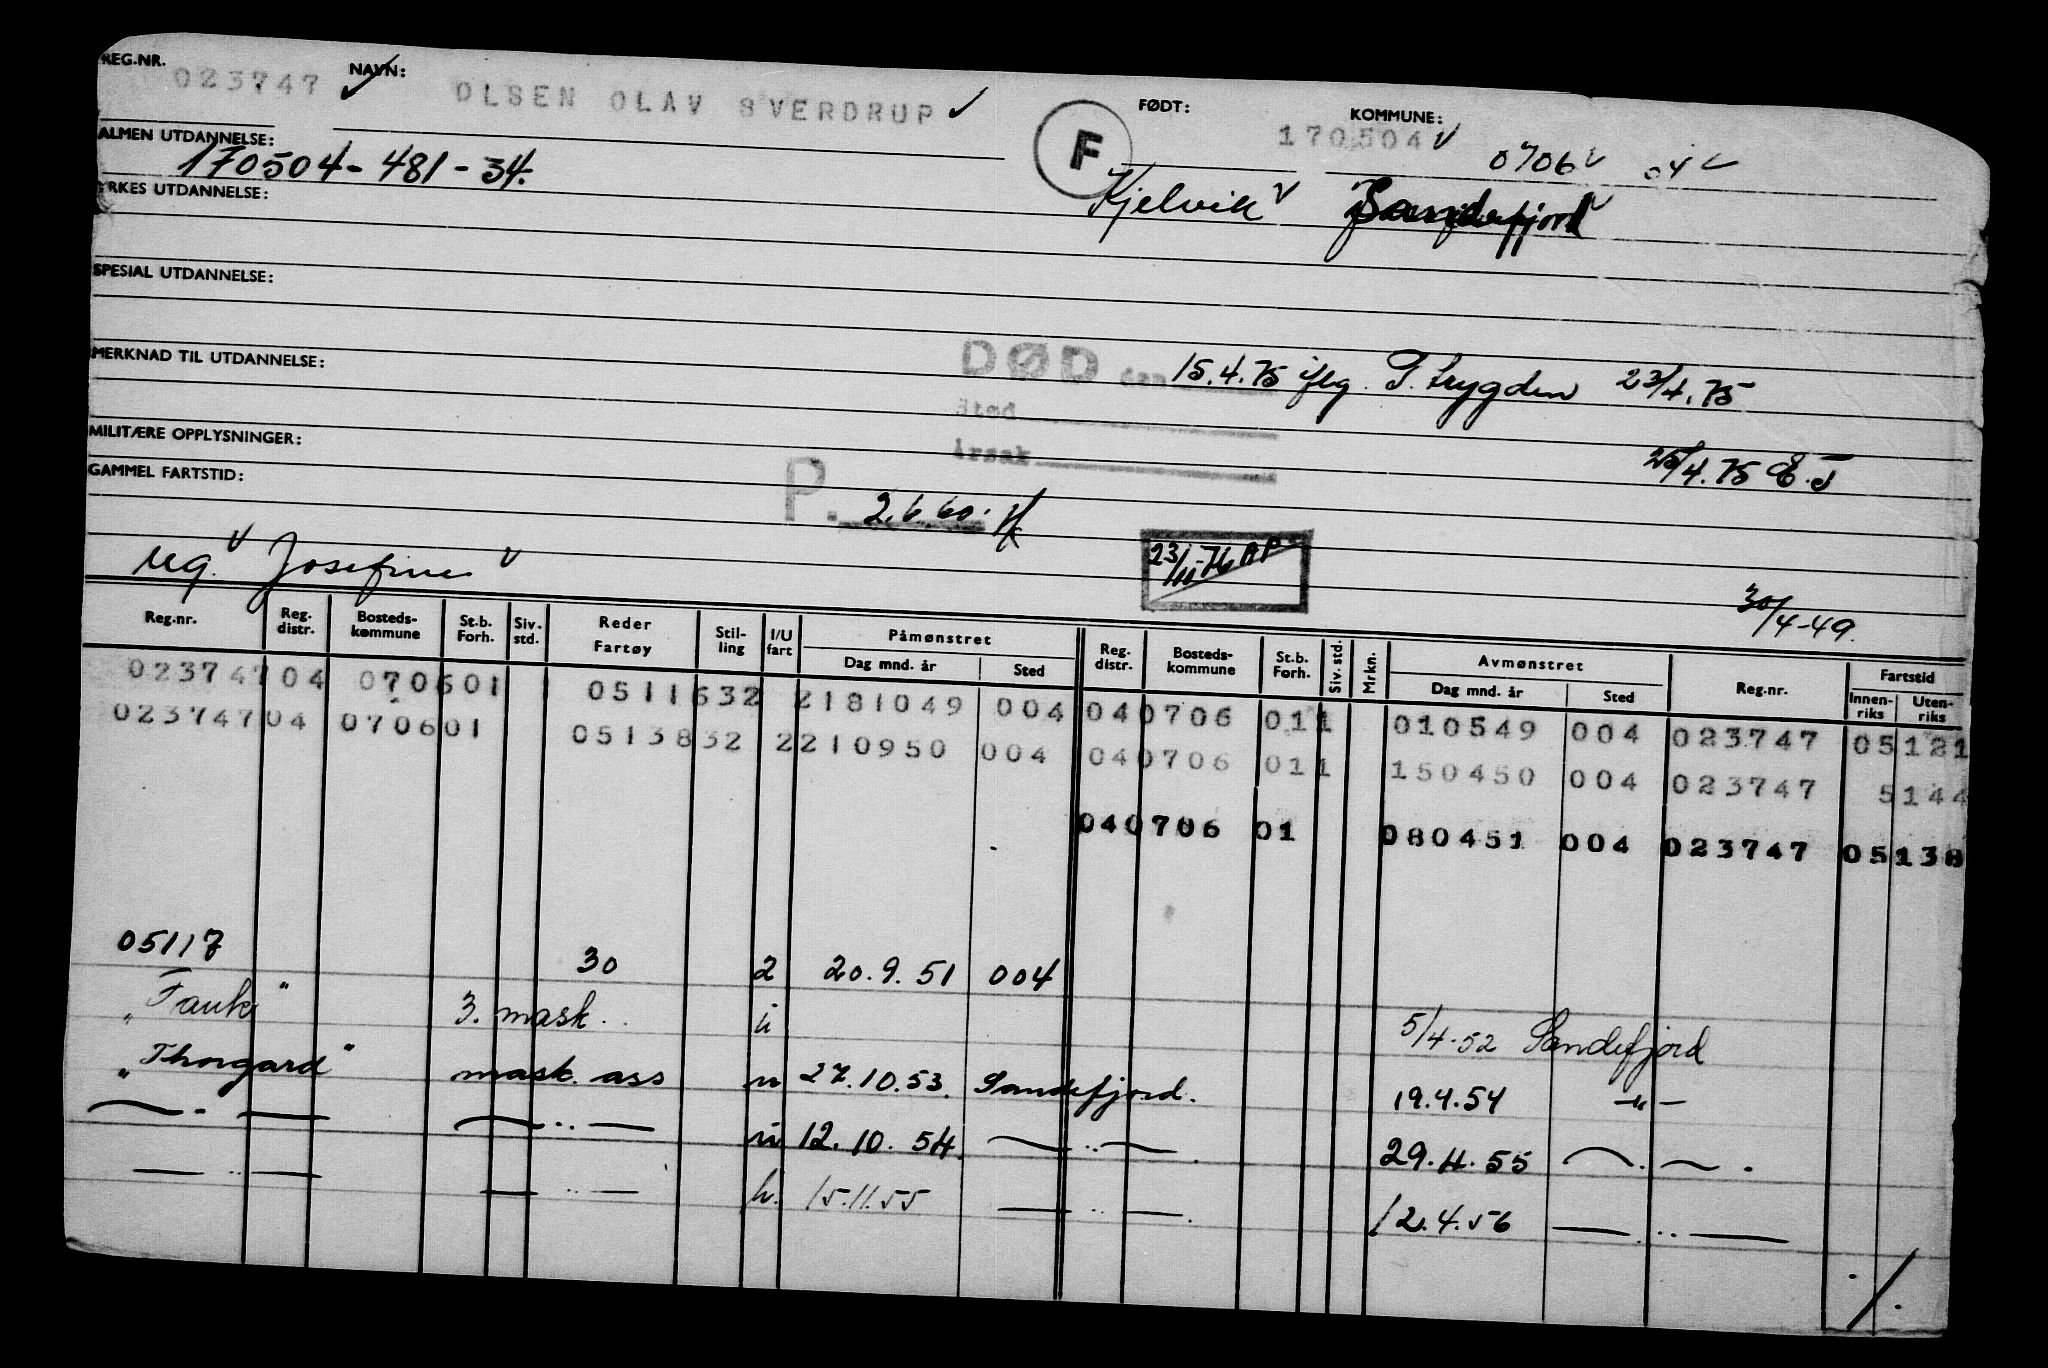 REG.NR. 023747 NAVN: OLSEN OLAV SVERDRUP F FØDT: 170504 KOMMUNE: 0706 04
ALMEN UTDANNELSE: 170504-481-34.
YRKES UTDANNELSE: Kjelvik Sandefjord
SPESIAL UTDANNELSE:
MERKNAD TIL UTDANNELSE: DØD den 15.4.75 iflg. S. trygden 23/4.75
Sted
MILITÆRE OPPLYSNINGER: Årsak 25/4.75 E.J
GAMMEL FARTSTID: P. 2.6.60.
23/11-76 AP
reg. Josefine 30/4-49.
Reg.nr. Reg. distr. Bosteds- kommune St.b. Forh. Siv. std. Reder Fartøy Stil- ling I/U fart Påmønstret Dag mnd. år Sted Reg. distr. Bosteds- kommune St.b. Forh. Siv. std. Mrkn. Avmønstret Dag mnd. år Sted Reg.nr. Fartstid Innen- riks Uten- riks
040706 011 010549 004 023747 05121
023747 04 070601 0511632 2181049 004 040706 011 150450 004 023747 5144
023747 04 070601 0513832 2210950 004 040706 01 080451 004 023747 05138
05117 30 2 20.9.51 004
"Tauk" 3. mask. u 5/4-52 Sandefjord
"Thorgard" mask. ass u 27.10.53. Sandefjord. 19.4.54 —"—
— .. — — .. — u 12.10.54. — .. — 29.4.55 — . — .
— .. — — .. — u. 15.11.55 — .. — 12.4.56 — .. —
./.